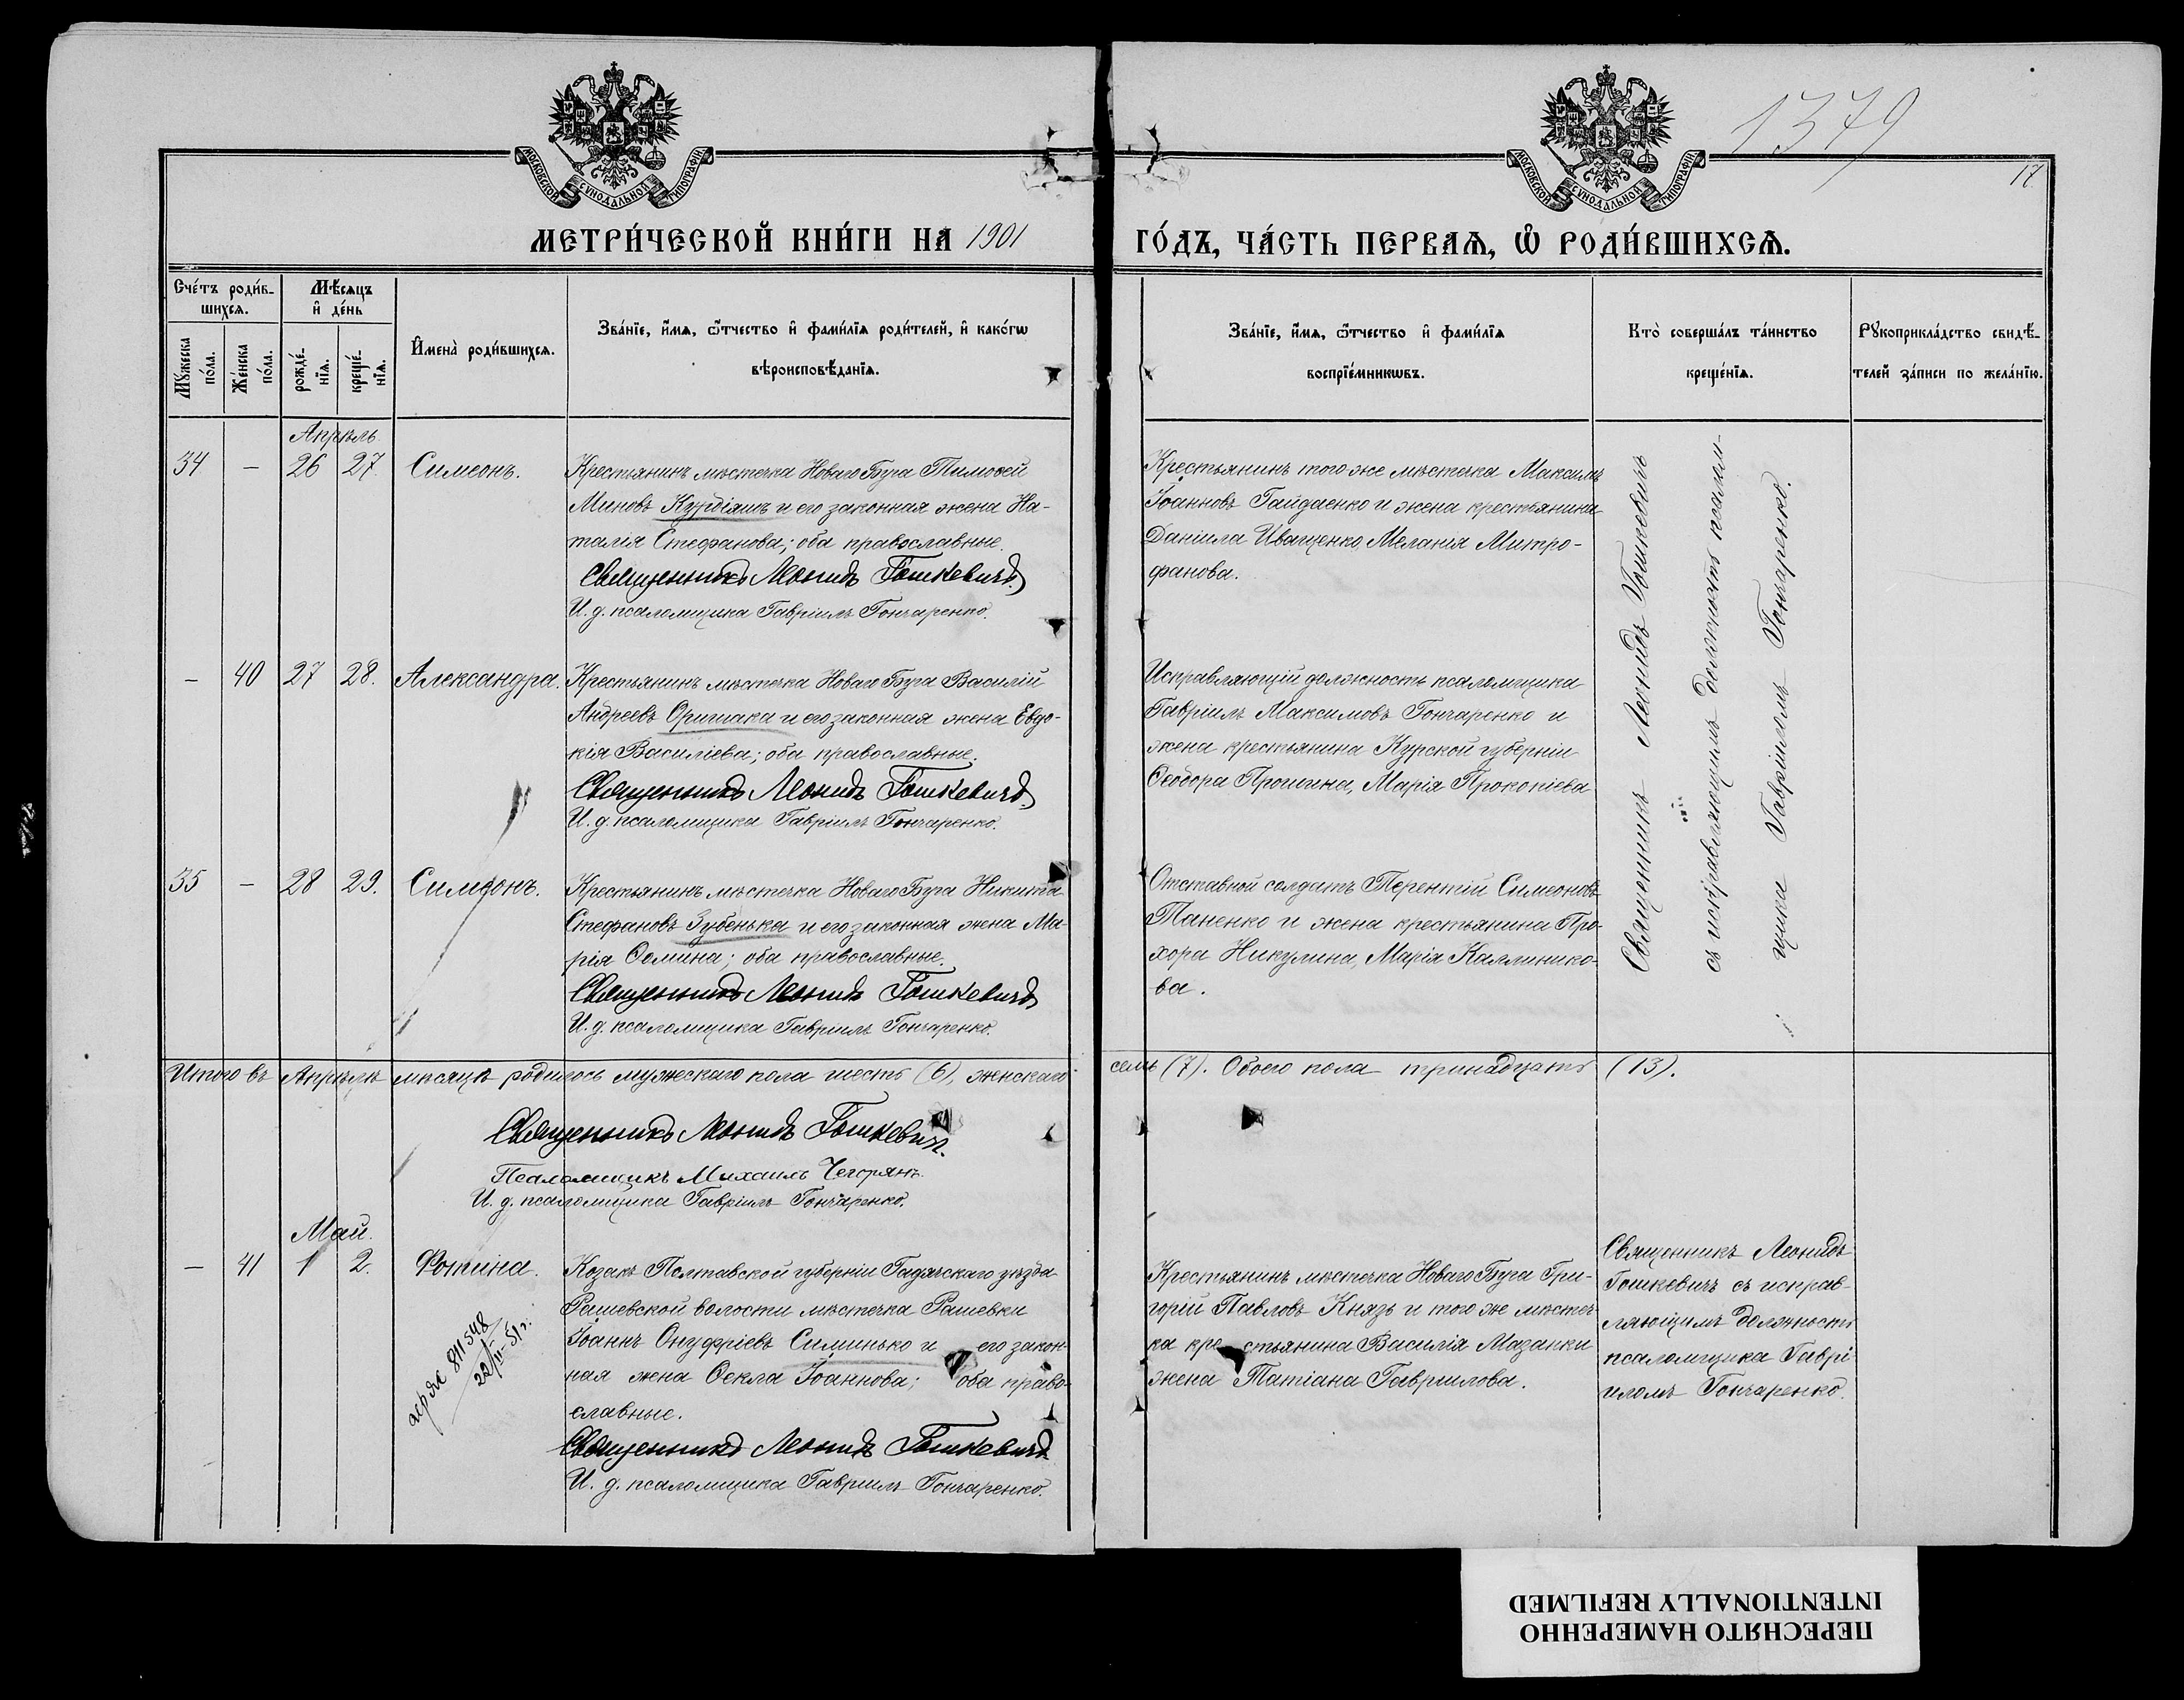 1379
17
МОСКОВСКОЙ СѴНОДАЛЬНОЙ ТИПОГРАФІИ.
МОСКОВСКОЙ СѴНОДАЛЬНОЙ ТИПОГРАФІИ.
МЕТРИ́ЧЕСКОЙ КНИ́ГИ НА 1901
ГО́ДЪ, ЧА́СТЬ ПЕРВАѦ, Ѡ РОДИ́ВШИХСѦ.
Сче́тъ роди́в-
шихсѧ.
Мѣ́сяцъ
и҆ де́нь
Мꙋжеска
по́ла.
Же́нска
по́ла.
рожде́-
нїѧ.
креще́-
нїѧ.
И҆мена̀ роди́вшихсѧ.
Зва́нїе, и҆́мѧ, ѻ҆́тчество и҆ фами́лїѧ роди́телей, и҆ како́гѡ
вѣроисповѣ́данїѧ.
Зва́нїе, и҆́мѧ, ѻ҆́тчество и҆ фами́лїѧ
воспрїе́мникѡвъ.
Кто̀ соверша́лъ та́инство
креще́нїѧ.
Рꙋкоприкла́дство свидѣ́-
телей за́писи по жела́нїю.
Апрѣль
34 — 26 27. Симеонъ.
Крестьянинъ мѣстечка Новаго Буга Тимоѳей
Миновъ Курдіяшъ и его законная жена На-
талія Стефанова; оба православные.
Священникъ Леонидъ Гошкевичъ
И. д. псаломщика Гавріилъ Гончаренко.
Крестьянинъ того же мѣстечка Максимъ
Іоанновъ Гайдаенко и жена крестьянина
Даніила Иващенко, Меланія Митро-
фанова.
Священникъ Леонидъ Гошкевичъ
съ исправляющимъ должность псалом-
щика Гавріиломъ Гончаренко.
— 40 27 28. Александра.
Крестьянинъ мѣстечка Новаго Буга Василій
Андреевъ Оришака и его законная жена Евдо-
кія Василіева; оба православные.
Священникъ Леонидъ Гошкевичъ
И. д. псаломщика Гавріилъ Гончаренко.
Исправляющій должность псаломщика
Гавріилъ Максимовъ Гончаренко и
жена крестьянина Курской губерніи
Ѳеодора Прошина, Марія Прокопіева
35 — 28 29. Симеонъ.
Крестьянинъ мѣстечка Новаго Буга Никита
Стефановъ Зубенька и его законная жена Ма-
рія Ѳомина; оба православные.
Священникъ Леонидъ Гошкевичъ
И. д. псаломщика Гавріилъ Гончаренко.
Отставной солдатъ Терентій Симеоновъ
Таненко и жена крестьянина Про-
хора Никулина, Марія Каллинико-
ва.
Итого въ Апрѣлѣ мѣсяцѣ родилось мужескаго пола шесть (6), женскаго
семь (7). Обоего пола тринадцать (13).
Священникъ Леонидъ Гошкевичъ.
Псаломщикъ Михаилъ Чегорянъ.
И. д. псаломщика Гавріилъ Гончаренко.
Май.
— 41 1 2. Фотина.
Козакъ Полтавской губерніи Гадячскаго уѣзда
Рашевской волости мѣстечка Рашевки
Іоаннъ Онуфріевъ Симинько и его закон-
ная жена Ѳекла Іоаннова; оба право-
славные.
Священникъ Леонидъ Гошкевичъ
И. д. псаломщика Гавріилъ Гончаренко.
811548
22/IV-51 г.
Крестьянинъ мѣстечка Новаго Буга Гри-
горій Павловъ Князь и того же мѣстеч-
ка крестьянина Василія Мазанки
жена Татіана Гавриилова.
Священникъ Леонидъ
Гошкевичъ съ исправ-
ляющимъ должность
псаломщика Гаврі-
иломъ Гончаренко.
ПЕРЕСНЯТО НАМЕРЕННО
INTENTIONALLY REFILMED